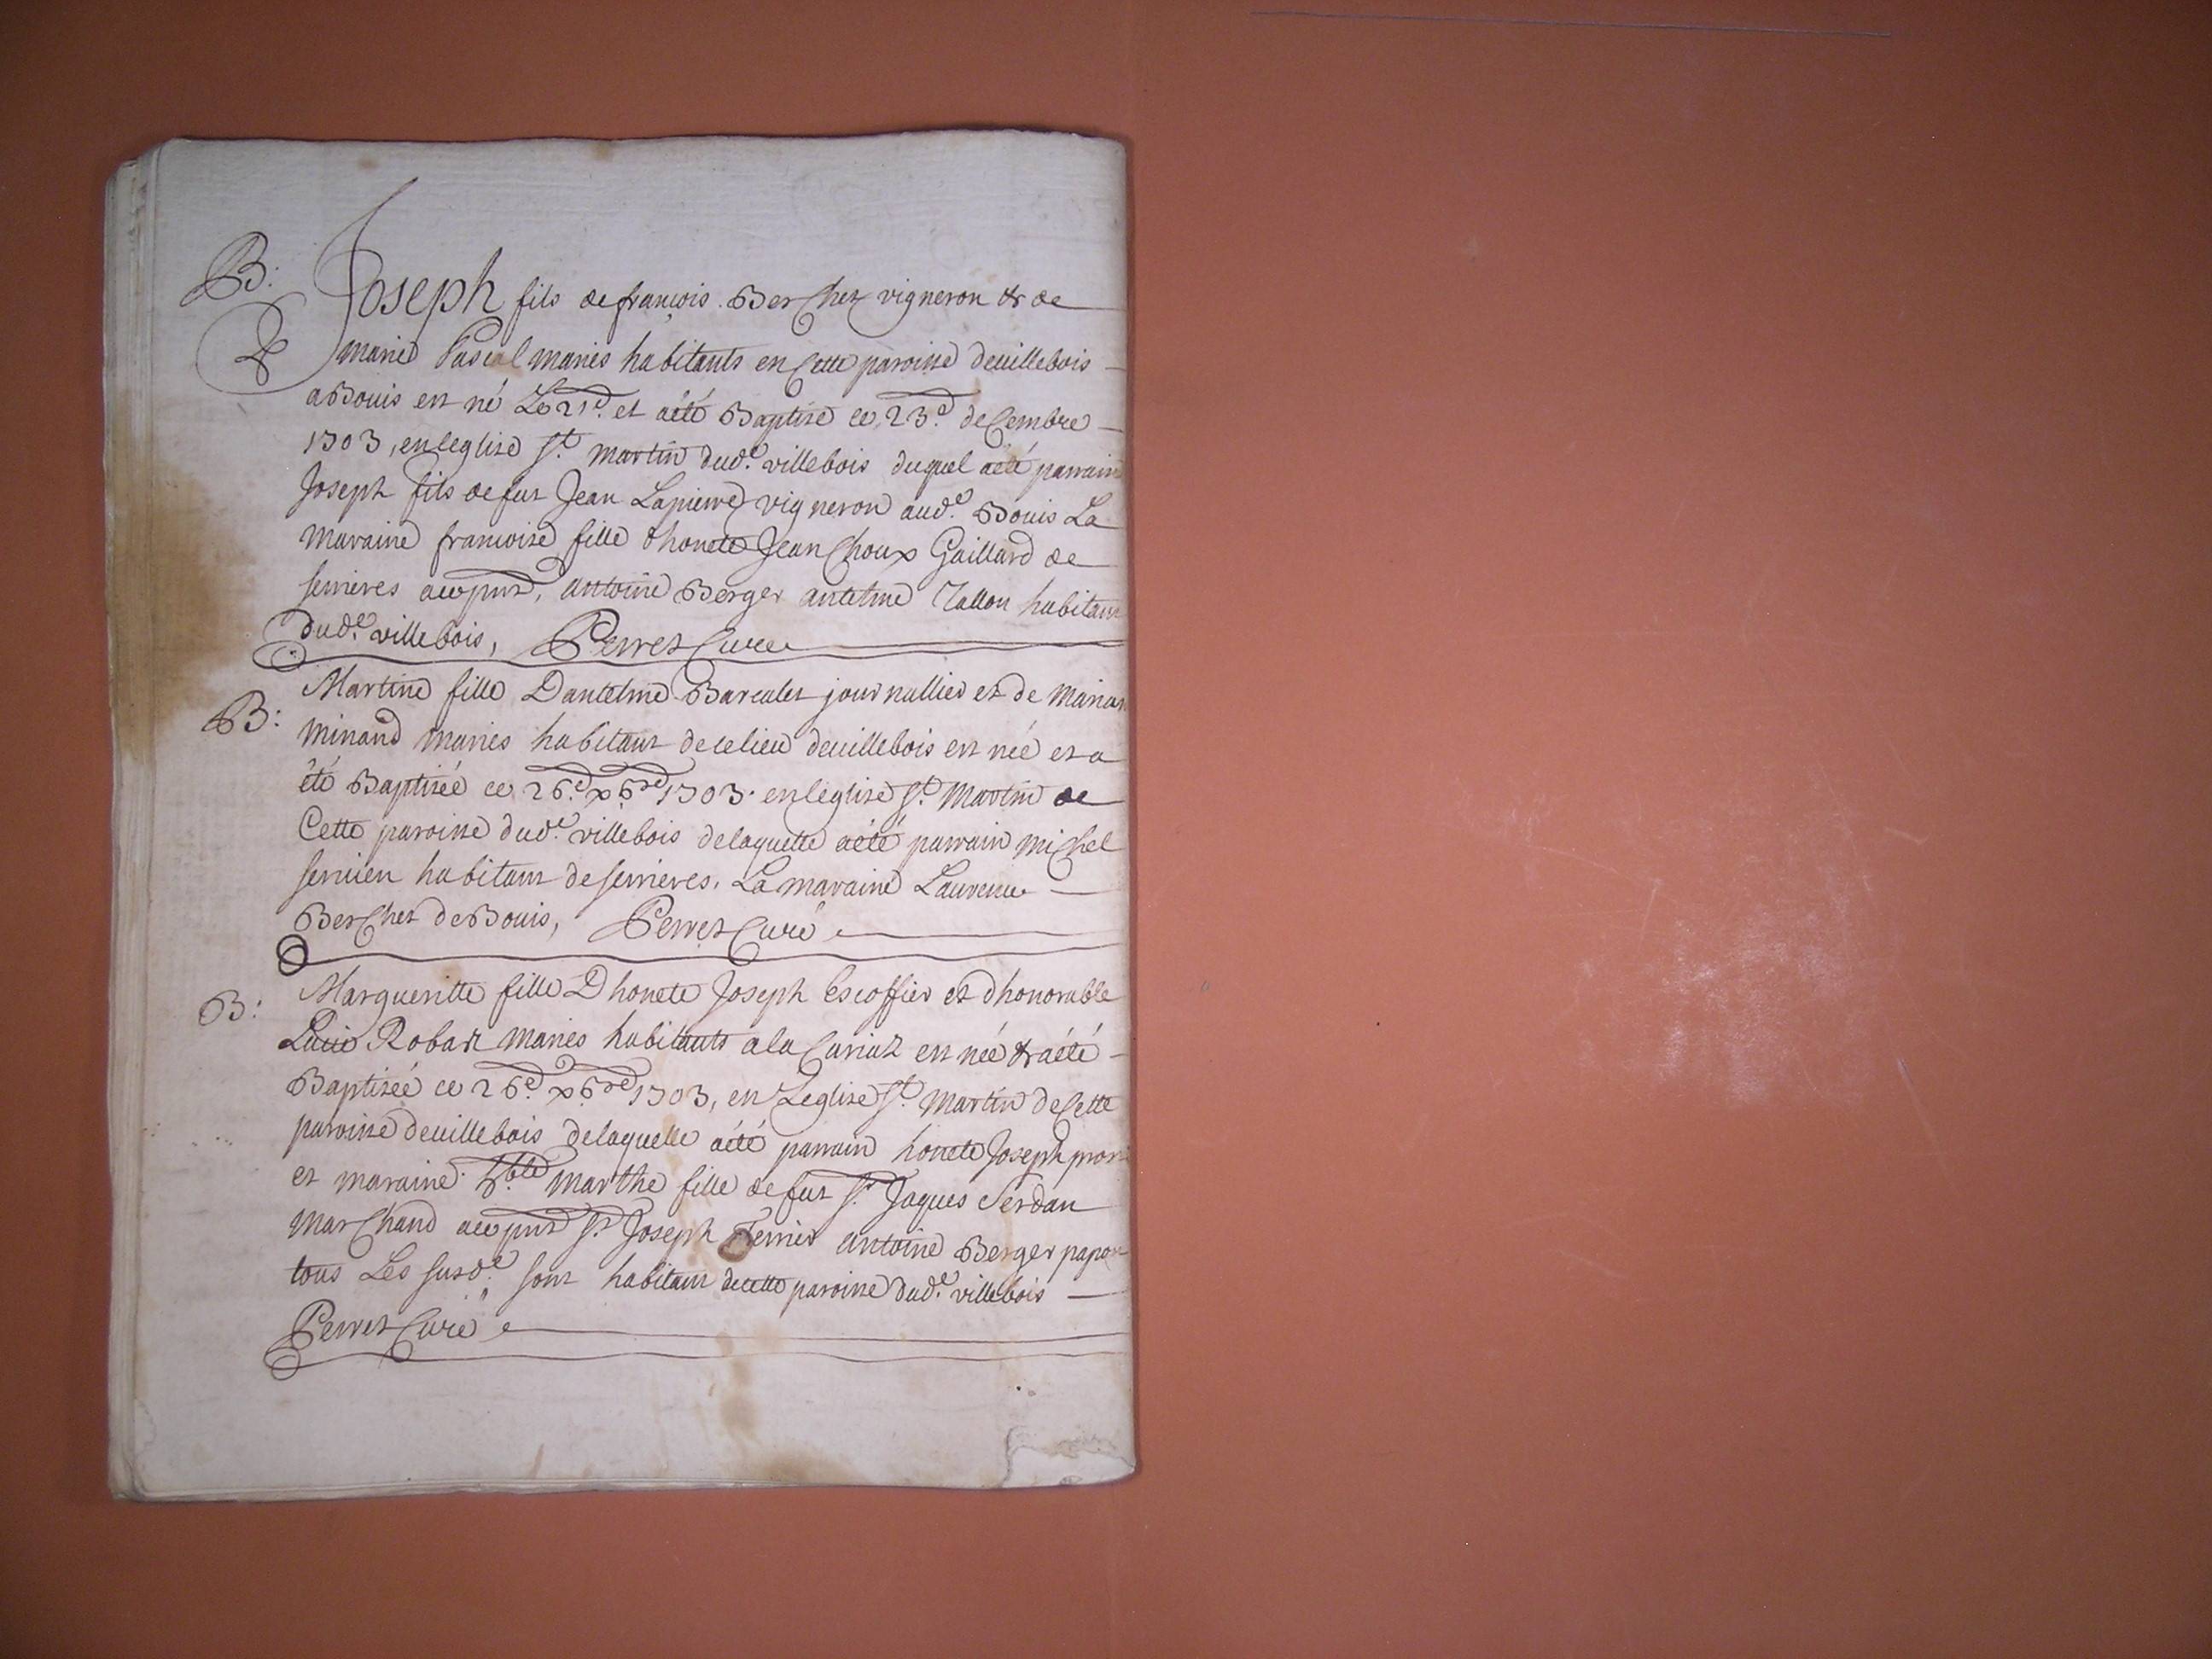 B: Joseph fils de françois Berchet vigneron & de
marie Pascal maries habitants en Cette paroisse deuillebois
a Bouis est né Le 21e. et aété Baptisé ce 23e. deCembre
1703, en leglise St. Martin dud.e villebois duquel aété parrain
Joseph fils de fut Jean Lapierre vigneron aud.e Bouis La
Maraine francoise fille dhonete Jean Choux Gaillard de
serrieres acopnes, antoine Berger antelme Tallon habitant
dud.e villebois, Perret Cure
B: Martine fille Dantelme Barcalet journallier et de Marian
Minand maries habitant de ce lieu deuillebois est née et a
été Baptizée ce 26.e xbre 1703. en léglise St. Martin de
Cette paroisse dud.e villebois delaquelle aété parrain Michel
seruien habitant de serrieres. La maraine Laurence
Berchet de Bouis, Perret Curé
B: Margueritte fille Dhonete Joseph Escoffier et dhonorable
Robat maries habitants ala Cariaz est née & aété
Baptizée ce 26.e xbre 1703, en Leglise St. Martin de Cette
paroisse deuillebois delaquelle aété parrain honete Joseph
et maraine hble Marthe fille de fut Sr. Jaques Serdan
Marchand acopnes Sr. Joseph Ferrier antoine Berger papon
tous Les susd.e sont habitant decette paroisse dud.e villebois
Perret Curé